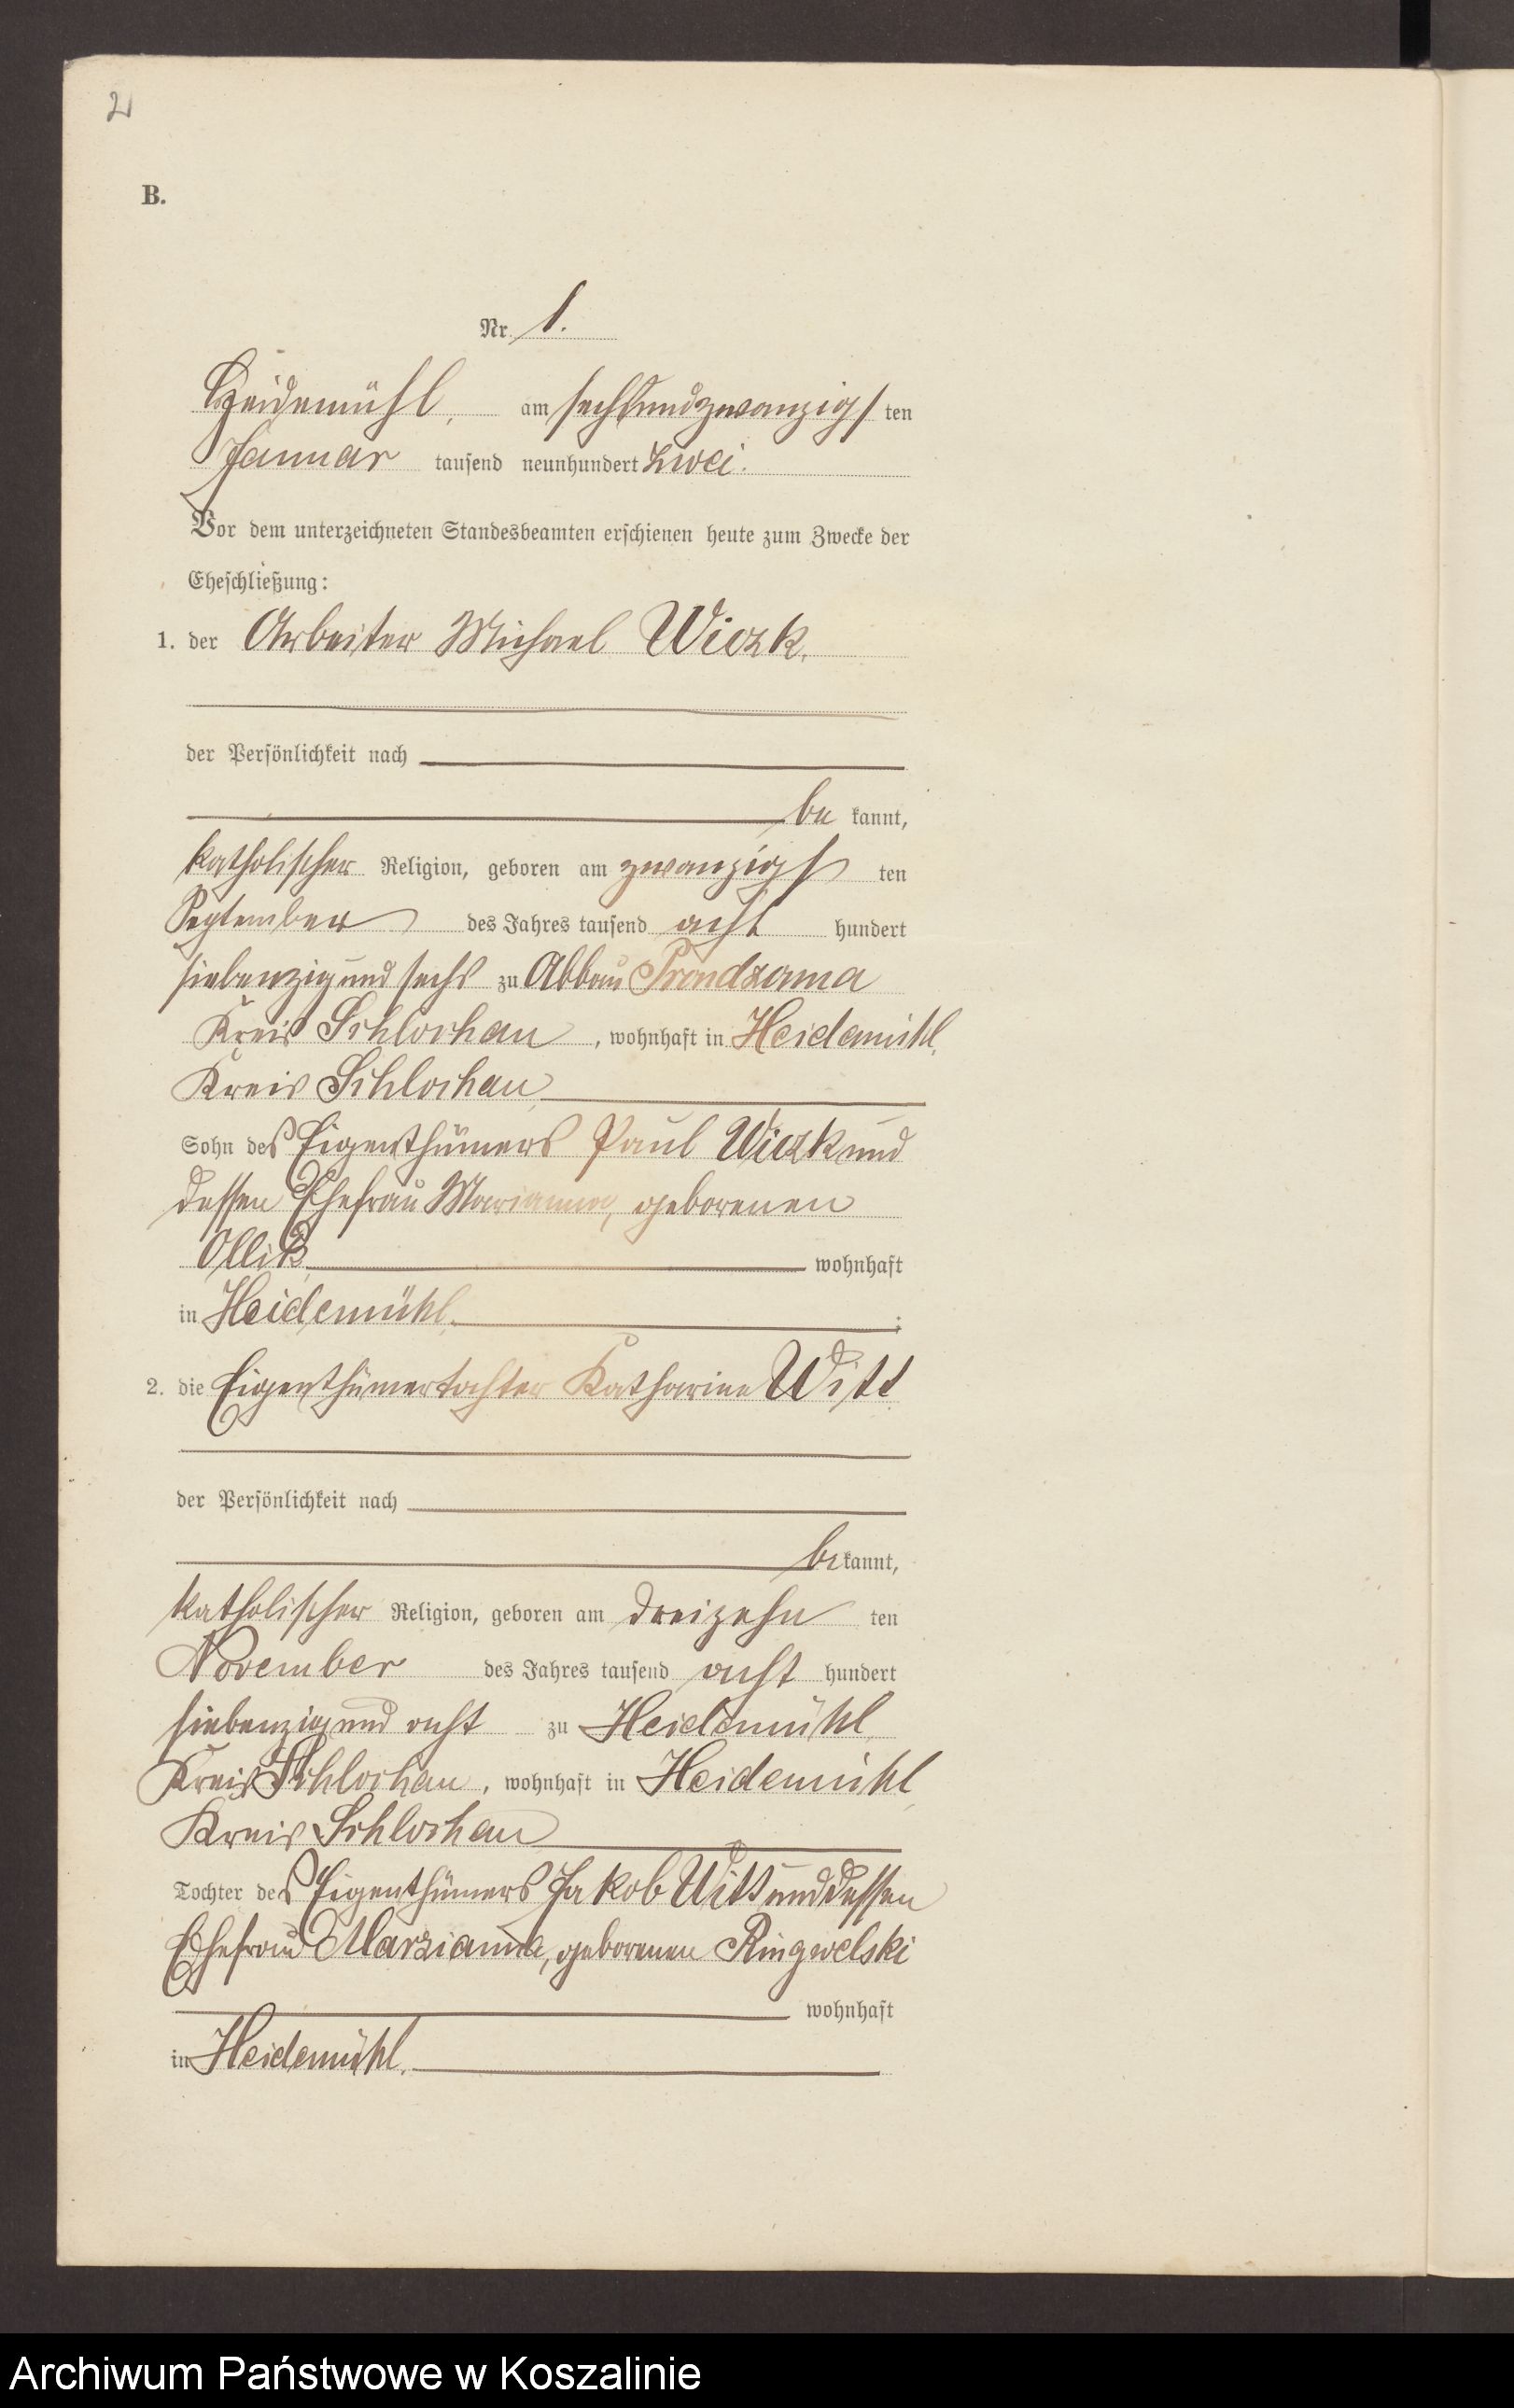 2
B.
Nr. 1.
Heidemühl, am sechsundzwanzigsten
Januar tausend neunhundert zwei.
Vor dem unterzeichneten Standesbeamten erschienen heute zum Zwecke der
Eheschließung:
1. der Arbeiter Michael Wiczk,
der Persönlichkeit nach
be kannt,
katholischer Religion, geboren am zwanzigsten
September des Jahres tausend acht hundert
siebenzig und sechs zu Abbau Prondzonna
Kreis Schlochau, wohnhaft in Heidemühl,
Kreis Schlochau,
Sohn des Eigenthümers Paul Wiczk und
dessen Ehefrau Marianna, geborenen
Ollik wohnhaft
in Heidemühl, ;
2. die Eigenthümertochter Katharina Witt
der Persönlichkeit nach
bekannt,
katholischer Religion, geboren am dreizehn ten
November des Jahres tausend acht hundert
siebenzig und acht zu Heidemühl,
Kreis Schlochau, wohnhaft in Heidemühl,
Kreis Schlochau
Tochter des Eigenthümers Jakob Witt und dessen
Ehefrau Marzianna, geborenen Ringwelski
wohnhaft
in Heidemühl.
Archiwum Państwowe w Koszalinie